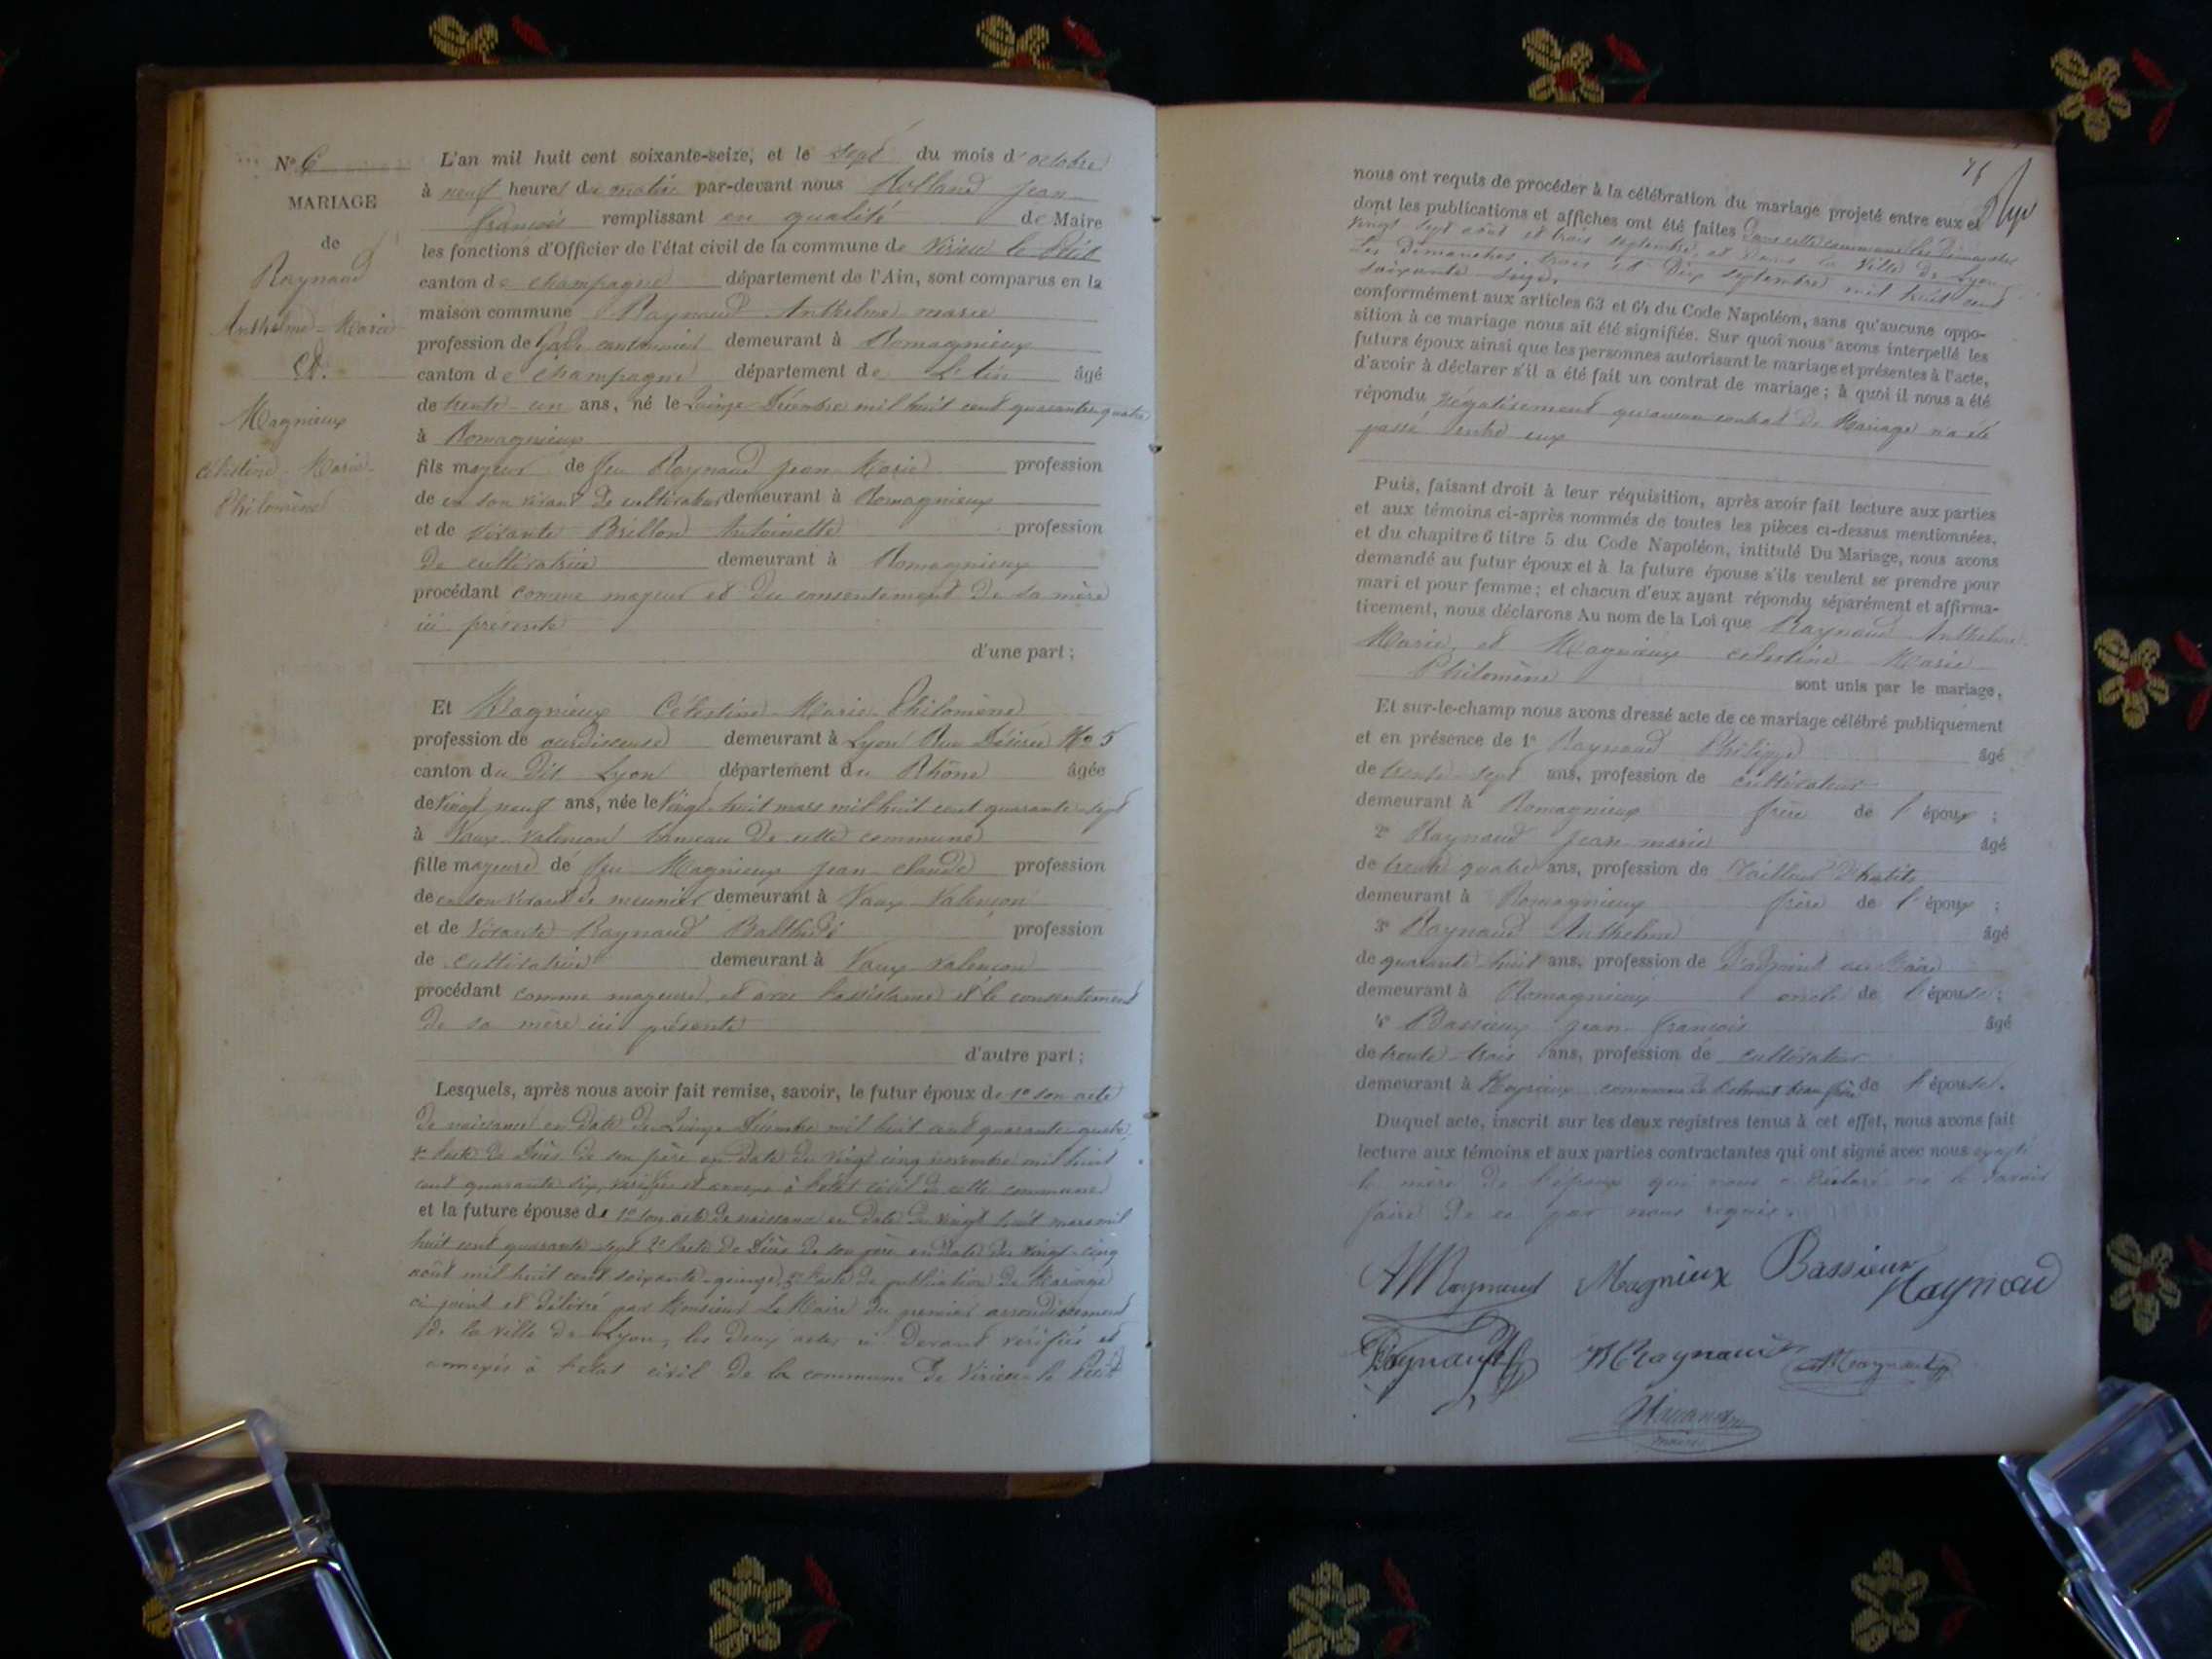 N° 6
MARIAGE
de
Raynaud
Anthelme-Marie
Et
Magnieux
Célestine-Marie-
Philomène
L'an mil huit cent soixante-seize, et le sept du mois d'octobre
à neuf heures du matin par-devant nous Rolland Jean
François remplissant en qualité de Maire
les fonctions d'Officier de l'état civil de la commune de Virieu le Petit
canton de Champagne département de l'Ain, sont comparus en la
maison commune Raynaud Anthelme marie
profession de Garde cantonnier demeurant à Romagnieux
canton de Champagne département de L'Ain âgé
de trente-un ans, né le Quinze Décembre mil huit cent quarante quatre
à Romagnieux
fils majeur de feu Raynaud Jean Marie profession
de en son vivant de cultivateur demeurant à Romagnieux
et de vivante Brillon Antoinette profession
de cultivatrice demeurant à Romagnieux
procédant comme majeur et du consentement de sa mère
ici présente
d'une part ;
Et Magnieux Célestine-Marie-Philomène
profession de ourdisseuse demeurant à Lyon Rue Désirée No 5
canton du Dit Lyon département du Rhône âgée
de Vingt neuf ans, née le Vingt-huit mars mil huit cent quarante-sept
à Vaux-Valençon hameau de cette commune
fille majeure de feu Magnieux Jean-Claude profession
de en son vivant de meunier demeurant à Vaux Valençon
et de Vivante Raynaud profession
de cultivatrice demeurant à Vaux-Valençon
procédant comme majeure et avec l'assistance et le consentement
de sa mère ici présente
d'autre part ;
Lesquels, après nous avoir fait remise, savoir, le futur époux de 1° son acte
de naissance en date du Quinze Décembre mil huit cent quarante-quatre
2° l'acte de Décès de son père en date du vingt cinq novembre mil huit
cent quarante six, vérifiés et annexés à l'etat civil de cette commune
et la future épouse de 1° son acte de naissance en date du vingt huit mars mil
huit cent quarante-sept 2° l'acte de Décès de son père en date du vingt-cinq
août mil huit cent soixante-quinze, 3° l'acte de publication de Mariage
ci-joint et délivré par Monsieur Le Maire du premier arrondissement
de la ville de Lyon, les deux actes ci devant vérifiés et
annexés à l'etat civil de la commune de Virieu le Petit
75
nous ont requis de procéder à la célébration du mariage projeté entre eux et
dont les publications et affiches ont été faites Dans cette commune les Dimanches
Vingt sept août et trois septembre, et dans la Ville de Lyon
Les Dimanches, trois et Dix septembre mil huit cent
soixante seize.
conformément aux articles 63 et 64 du Code Napoléon, sans qu'aucune oppo-
sition à ce mariage nous ait été signifiée. Sur quoi nous avons interpellé les
futurs époux ainsi que les personnes autorisant le mariage et présentes à l'acte,
d'avoir à déclarer s'il a été fait un contrat de mariage ; à quoi il nous a été
répondu négativement qu'aucun contrat de Mariage n'a été
passé entre eux
Puis, faisant droit à leur réquisition, après avoir fait lecture aux parties
et aux témoins ci-après nommés de toutes les pièces ci-dessus mentionnées,
et du chapitre 6 titre 5 du Code Napoléon, intitulé Du Mariage, nous avons
demandé au futur époux et à la future épouse s'ils veulent se prendre pour
mari et pour femme ; et chacun d'eux ayant répondu séparément et affirma-
tivement, nous déclarons Au nom de la Loi que Raynaud Anthelme
Marie et Magnieux Célestine-Marie-
Philomène sont unis par le mariage,
Et sur-le-champ nous avons dressé acte de ce mariage célébré publiquement
et en présence de 1° Raynaud Philippe âgé
de trente-sept ans, profession de cultivateur
demeurant à Romagnieux frère de l'époux ;
2° Raynaud Jean marie âgé
de trente quatre ans, profession de Tailleur d'habits
demeurant à Romagnieux frère de l'époux ;
3° Raynaud Anthelme âgé
de quarante-huit ans, profession de d'adjoint au Maire
demeurant à Romagnieux oncle de l'épouse ;
4° Bassieux Jean-François âgé
de trente-trois ans, profession de cultivateur
demeurant à commune de beau frère de l'épouse.
Duquel acte, inscrit sur les deux registres tenus à cet effet, nous avons fait
lecture aux témoins et aux parties contractantes qui ont signé avec nous excepté
la mère de l'époux qui nous a déclaré ne le savoir
faire de ce par nous requise.
AMRaynaud Magnieux Bassieux Raynaud
Raynaud Raynaud Raynaud
maire